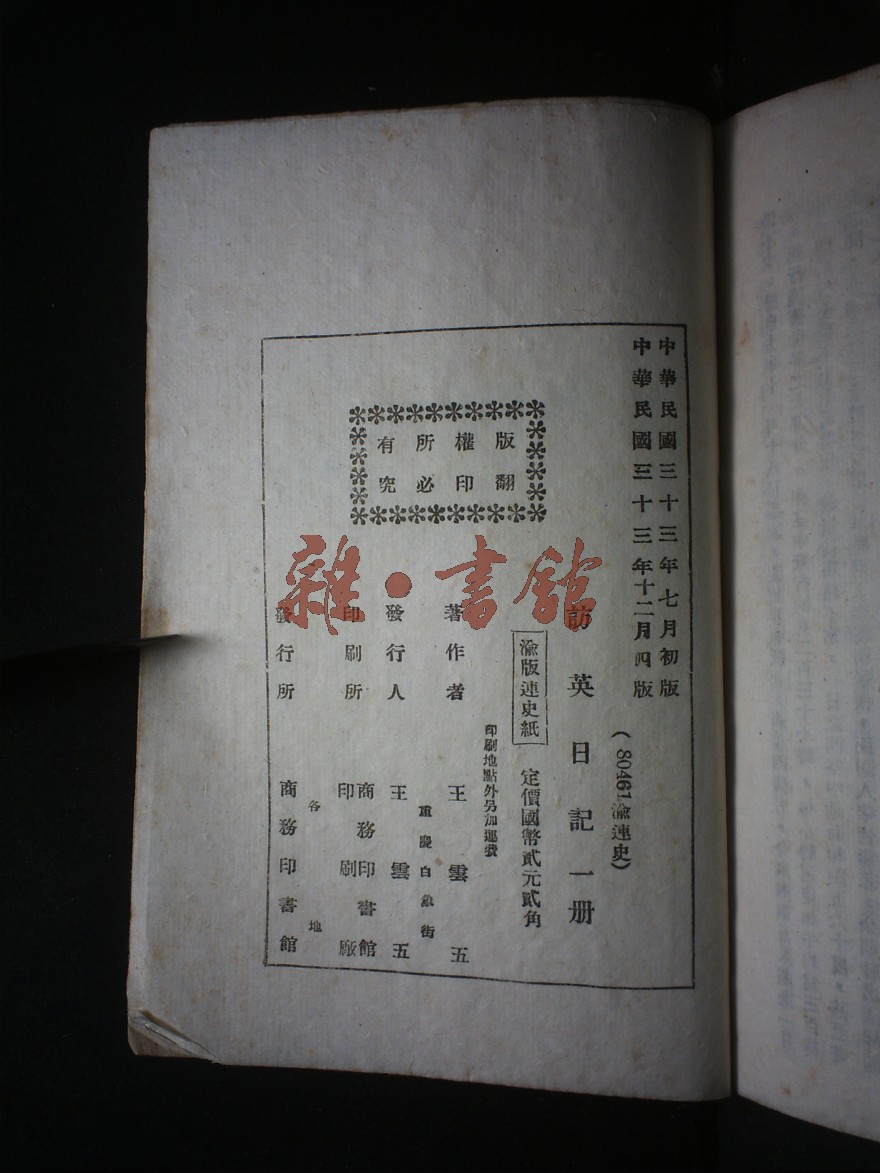 中華民國三十三年七月初版
中華民國三十三年十二月四版
(80461渝連史)
訪英日記一册
渝版連史紙
定價國幣貳元貳角
印刷地點外另加運費
版權所有
翻印必究
著作者 王雲五
重慶白象街
發行人 王雲五
印刷所 商務印書館印刷廠
各地
發行所 商務印書館
雜·書館